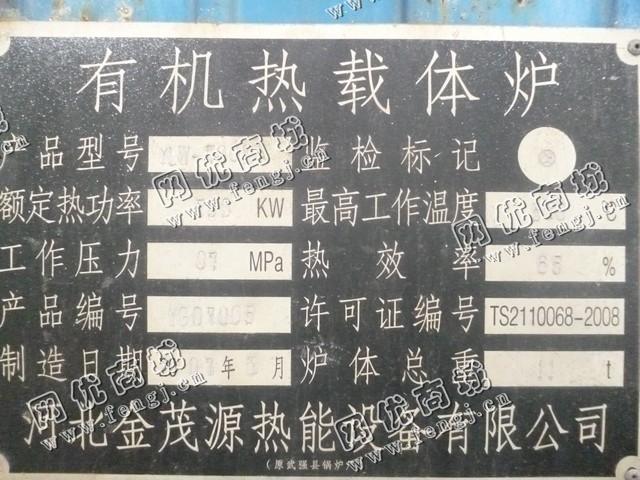 有机热载体炉
产品型号 监检标记
额定热功率 KW 最高工作温度
工作压力 MPa 热效率 65 %
产品编号 YG07005 许可证编号 TS2110068-2008
制造日期 年 月 炉体总重 11 t
河北金茂源热能设备有限公司
(原武强县锅炉
网优商城
www.fengj.cn
网优商城
www.fengj.cn
网优商城
www.fengj.cn
网优商城
www.fengj.cn